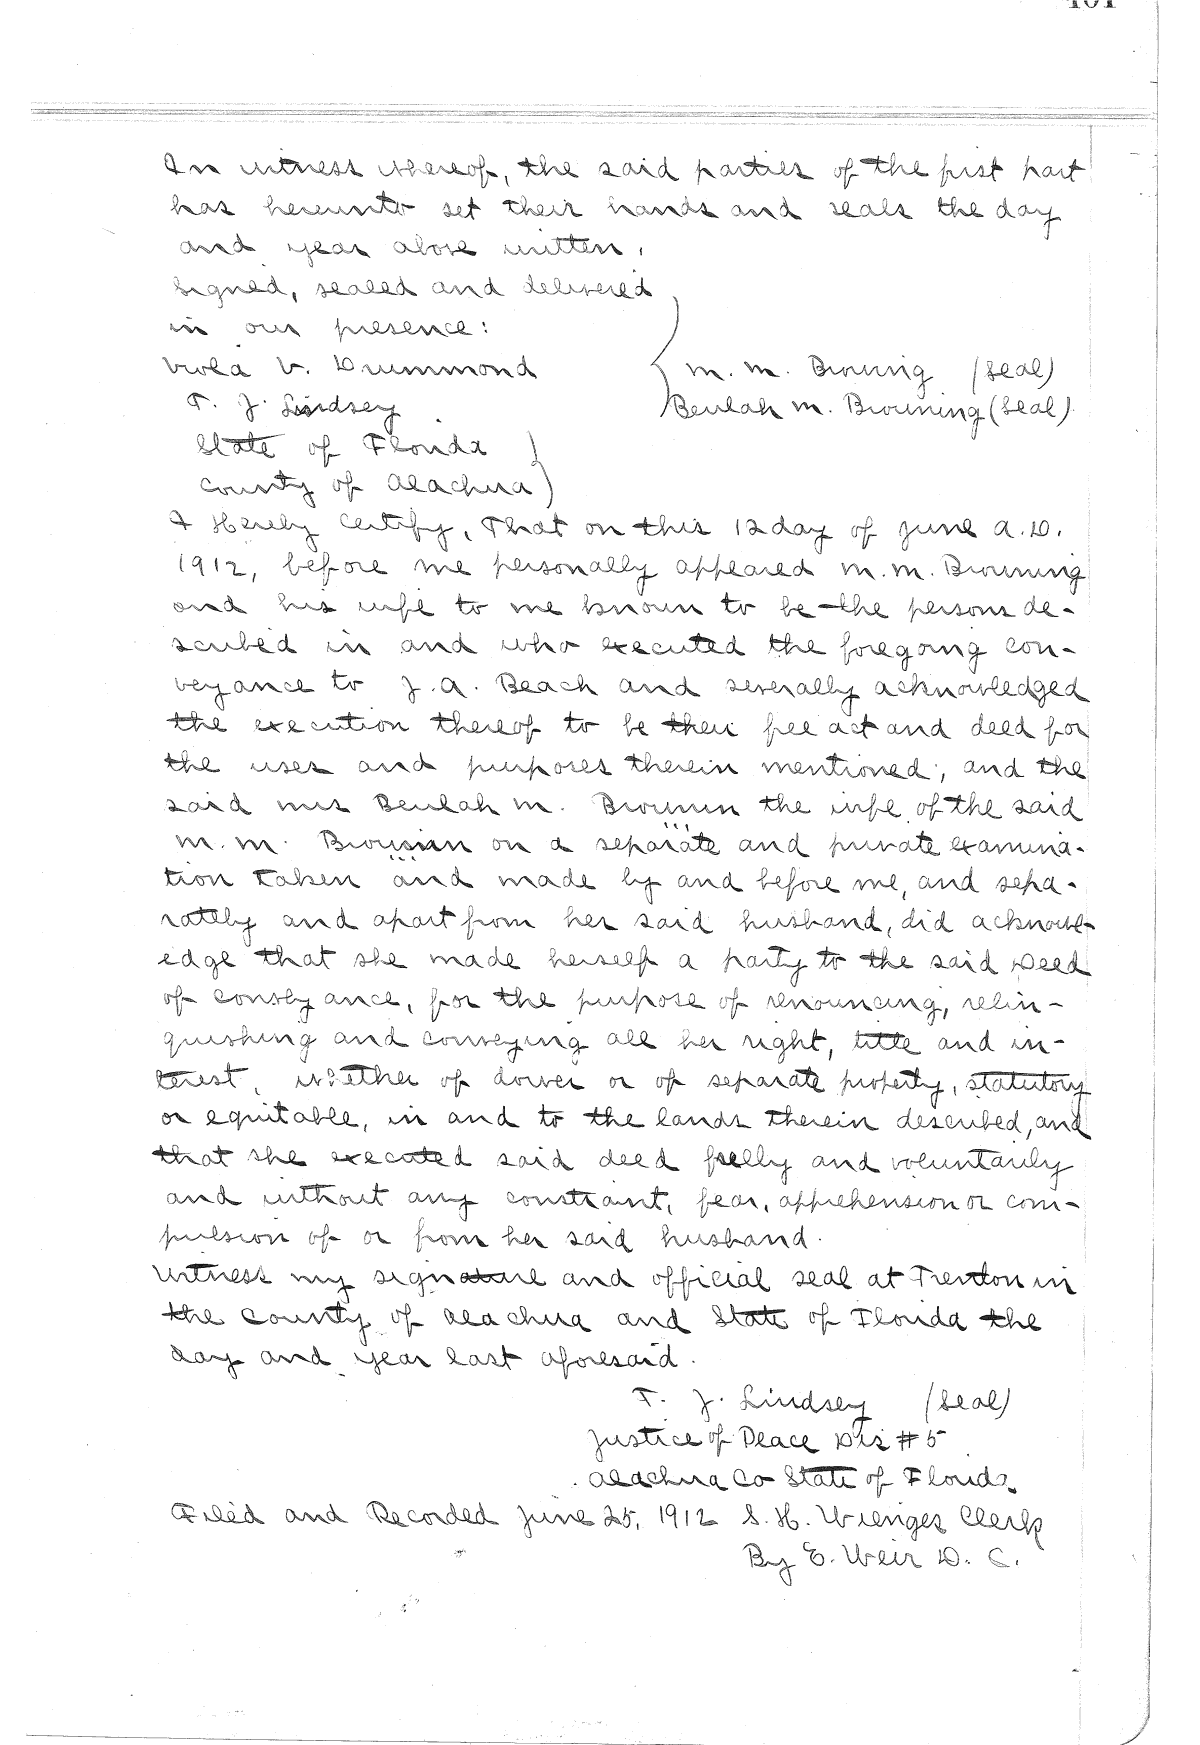 In witness whereof, the said parties of the first part
has hereunto set their hands and seals the day
and year above written.
Signed, sealed and delivered
in our presence:
Viola V. Drummond
M. M. Browning (Seal)
T. J. Lindsey
Beulah M. Browning (Seal)
State of Florida
County of Alachua
I Hereby Certify, That on this 12 day of June A.D.
1912, before me personally appeared M. M. Browning
and his wife to me known to be the persons de-
scribed in and who executed the foregoing con-
veyance to J. A. Beach and severally acknowledged
the execution thereof to be their free act and deed for
the uses and purposes therein mentioned; and the
said mrs Beulah M. Brownin the wife of the said
M. M. Brownin on a separate and private examina-
tion taken and made by and before me, and sepa-
rately and apart from her said husband, did acknowl-
edge that she made herself a party to the said Deed
of Conveyance, for the purpose of renouncing, relin-
quishing and conveying all her right, title and in-
terest, whether of dower or of separate property, statutory
or equitable, in and to the lands therein described, and
that she executed said deed freely and voluntarily
and without any constraint, fear, apprehension or com-
pulsion of or from her said husband.
Witness my signature and official seal at Trenton in
the County of Alachua and State of Florida the
day and year last aforesaid.
T. J. Lindsey (Seal)
Justice of Peace Dis # 5
Alachua Co State of Florida
Filed and Recorded June 25, 1912 S. H. Wienges Clerk
By E. Weir D. C.